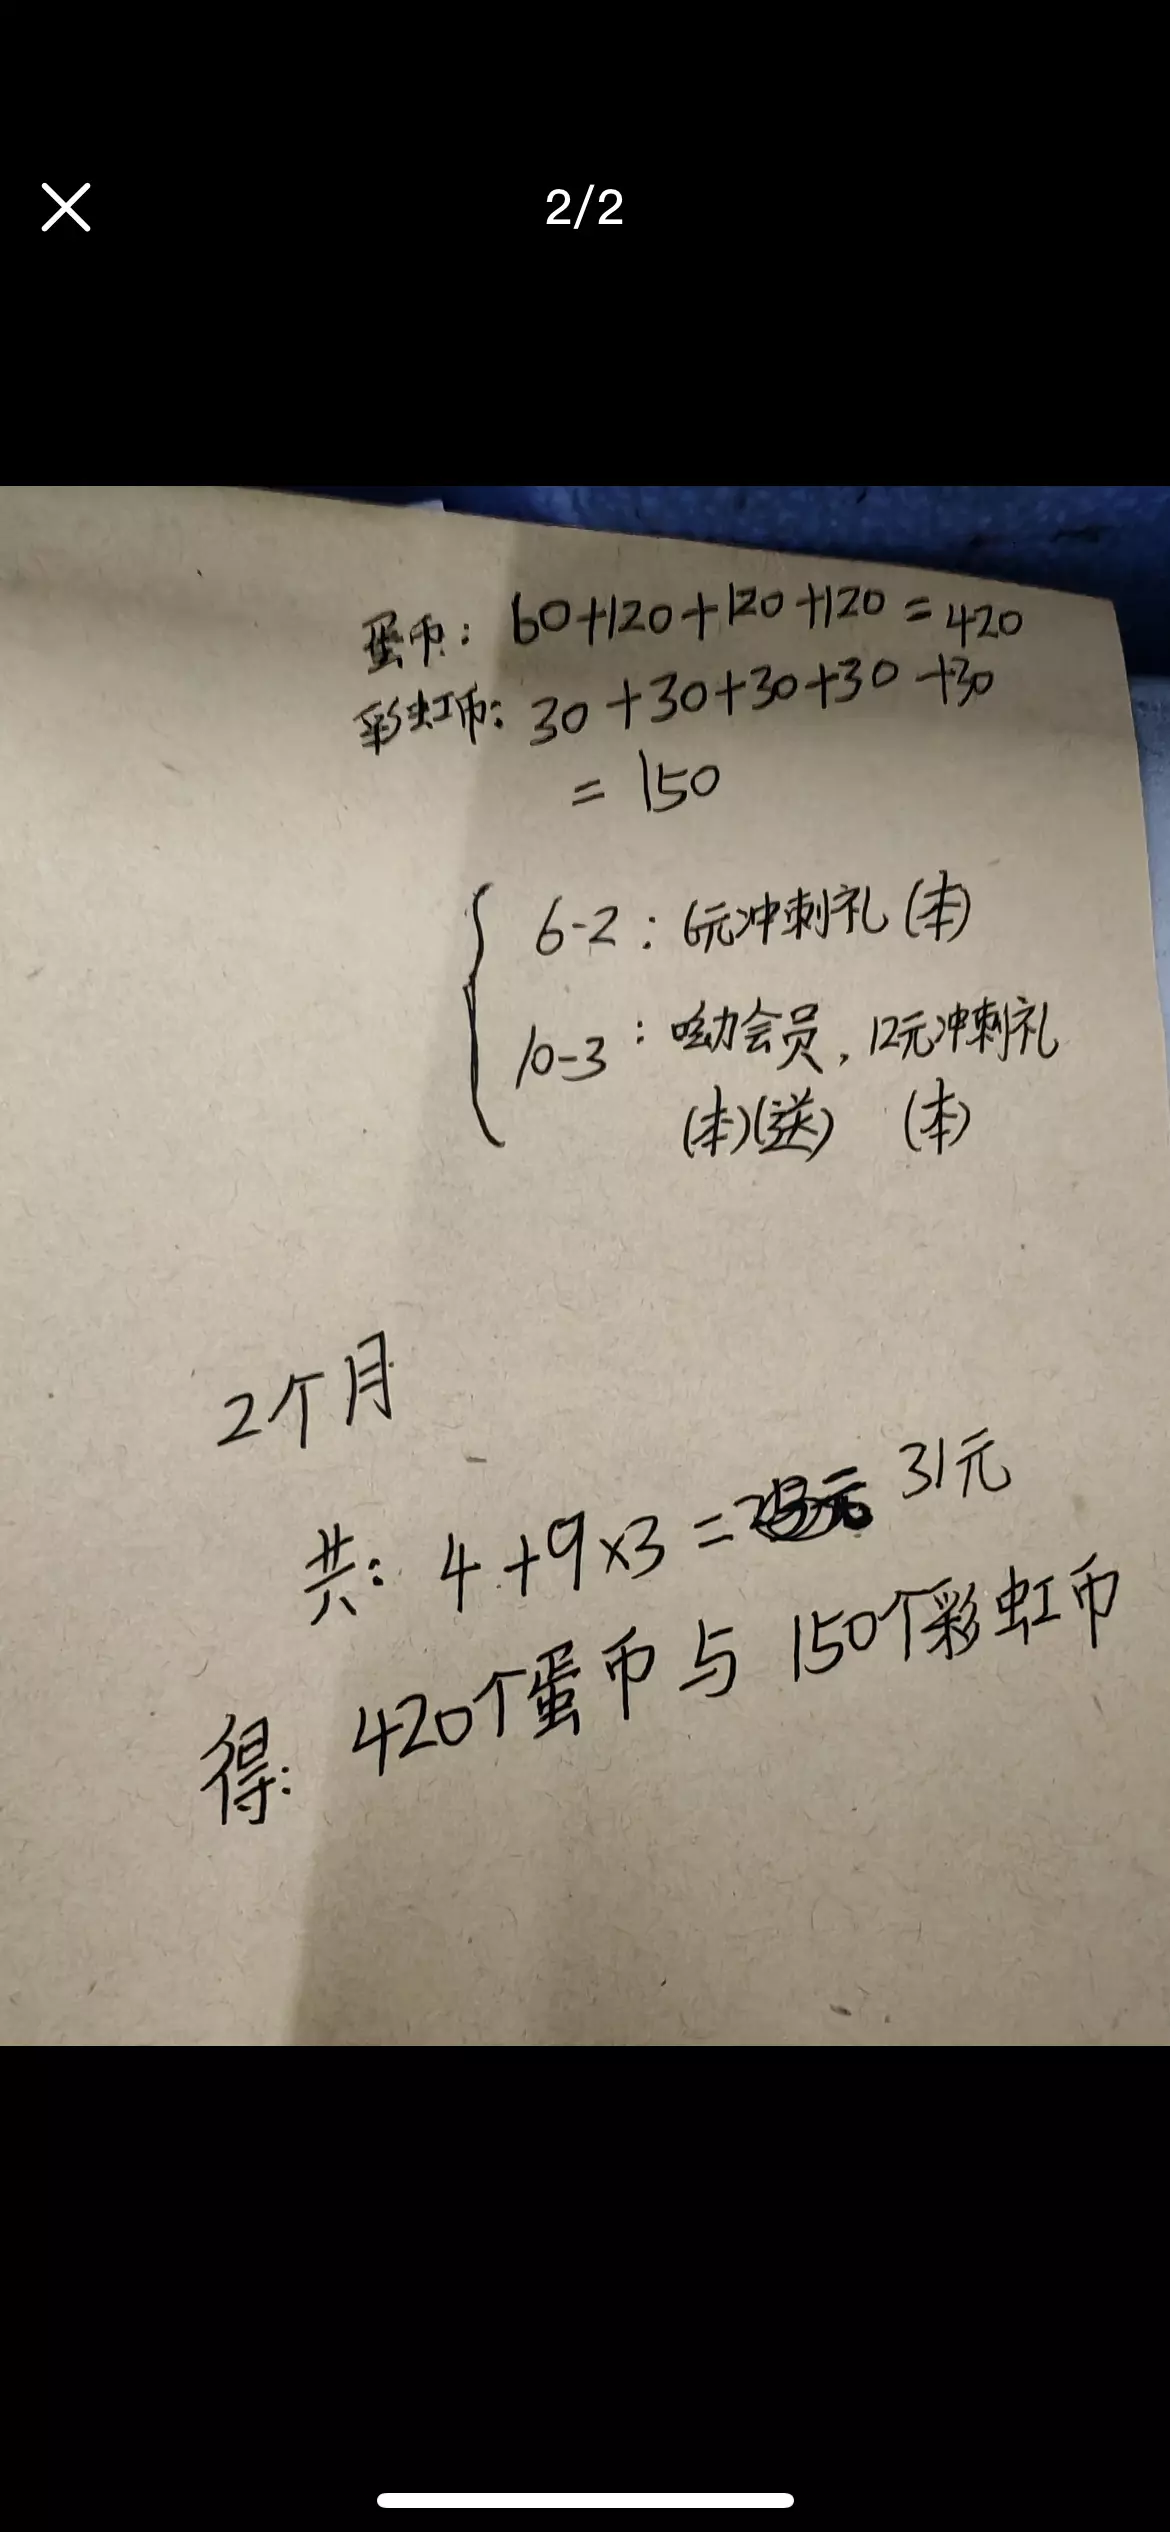 2/2
蛋币：60+120+120+120=420
彩虹币：30+30+30+30+30
=150
6-2：6元冲刺礼(本)
10-3：呦会员，12元冲刺礼
(本)(送) (本)
2个月
共：4+9×3= 31元
得：420个蛋币与150个彩虹币